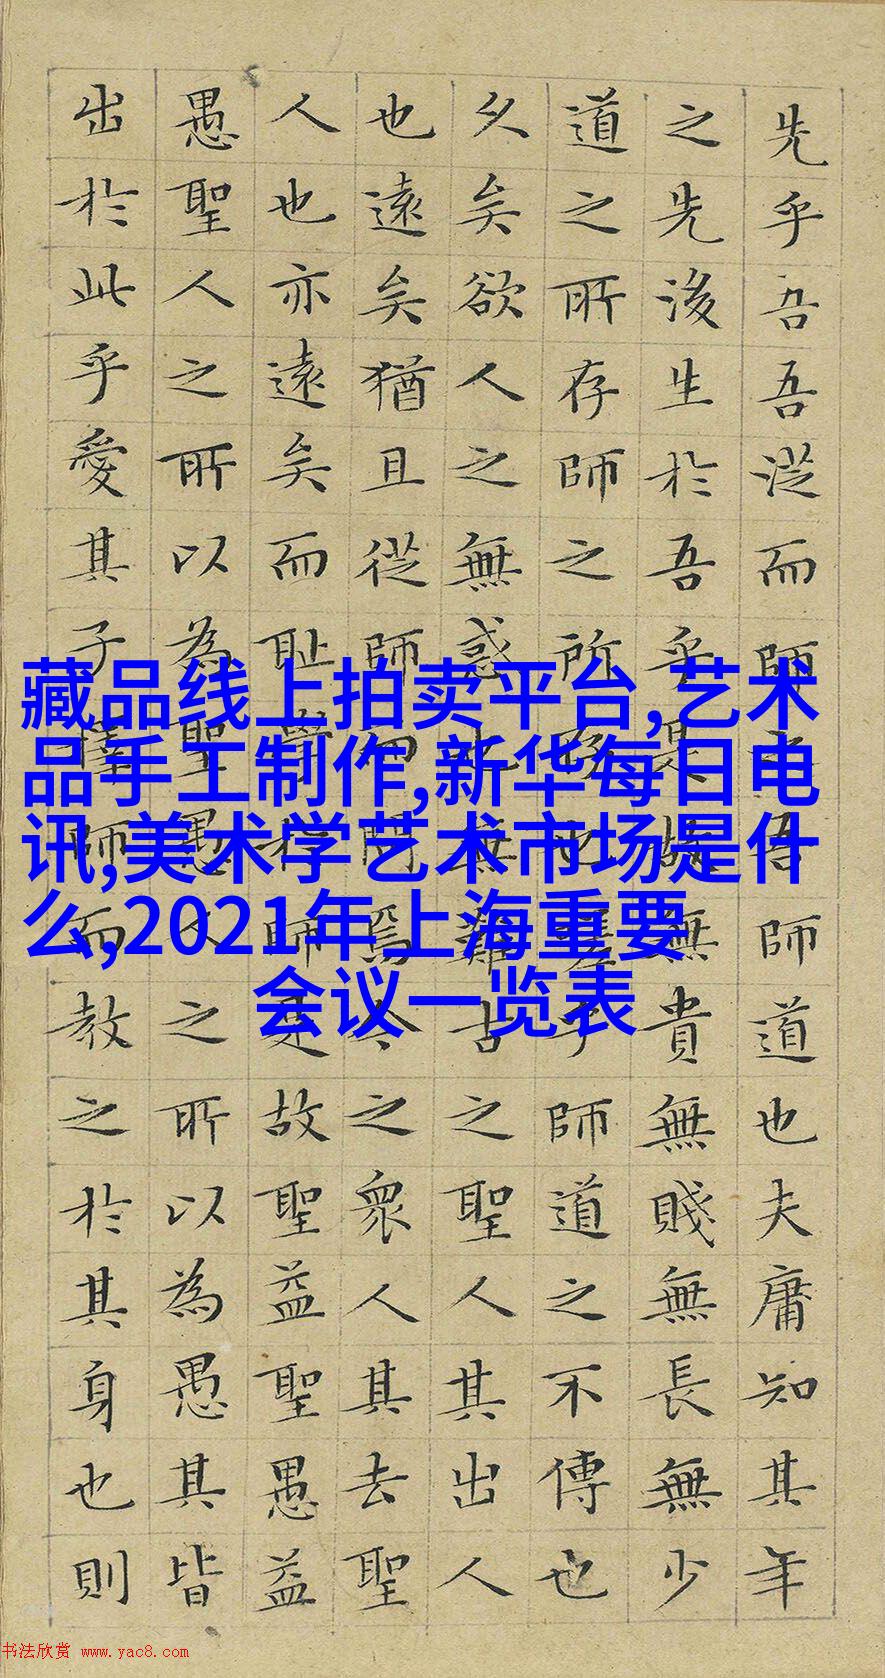 先乎吾吾從而師之吾師道也夫庸知其年
之先後生於吾乎是故無貴無賤無長無少
道之所存師之所存也嗟乎師道之不傳也
久矣欲人之無惑也難古之聖人其出人
也遠矣猶且從師而問焉今之衆人其去聖
人也亦遠矣而恥學於師是故聖益聖愚益
愚聖人之所以為聖愚人之所以為愚其皆
出於此乎愛其子擇師而教之於其身也則
藏品线上拍卖平台,艺术
品手工制作,新华每日电
讯,美术学艺术市场是什
么,2021年上海重要
会议一览表
书法欣赏 www.yac8.com